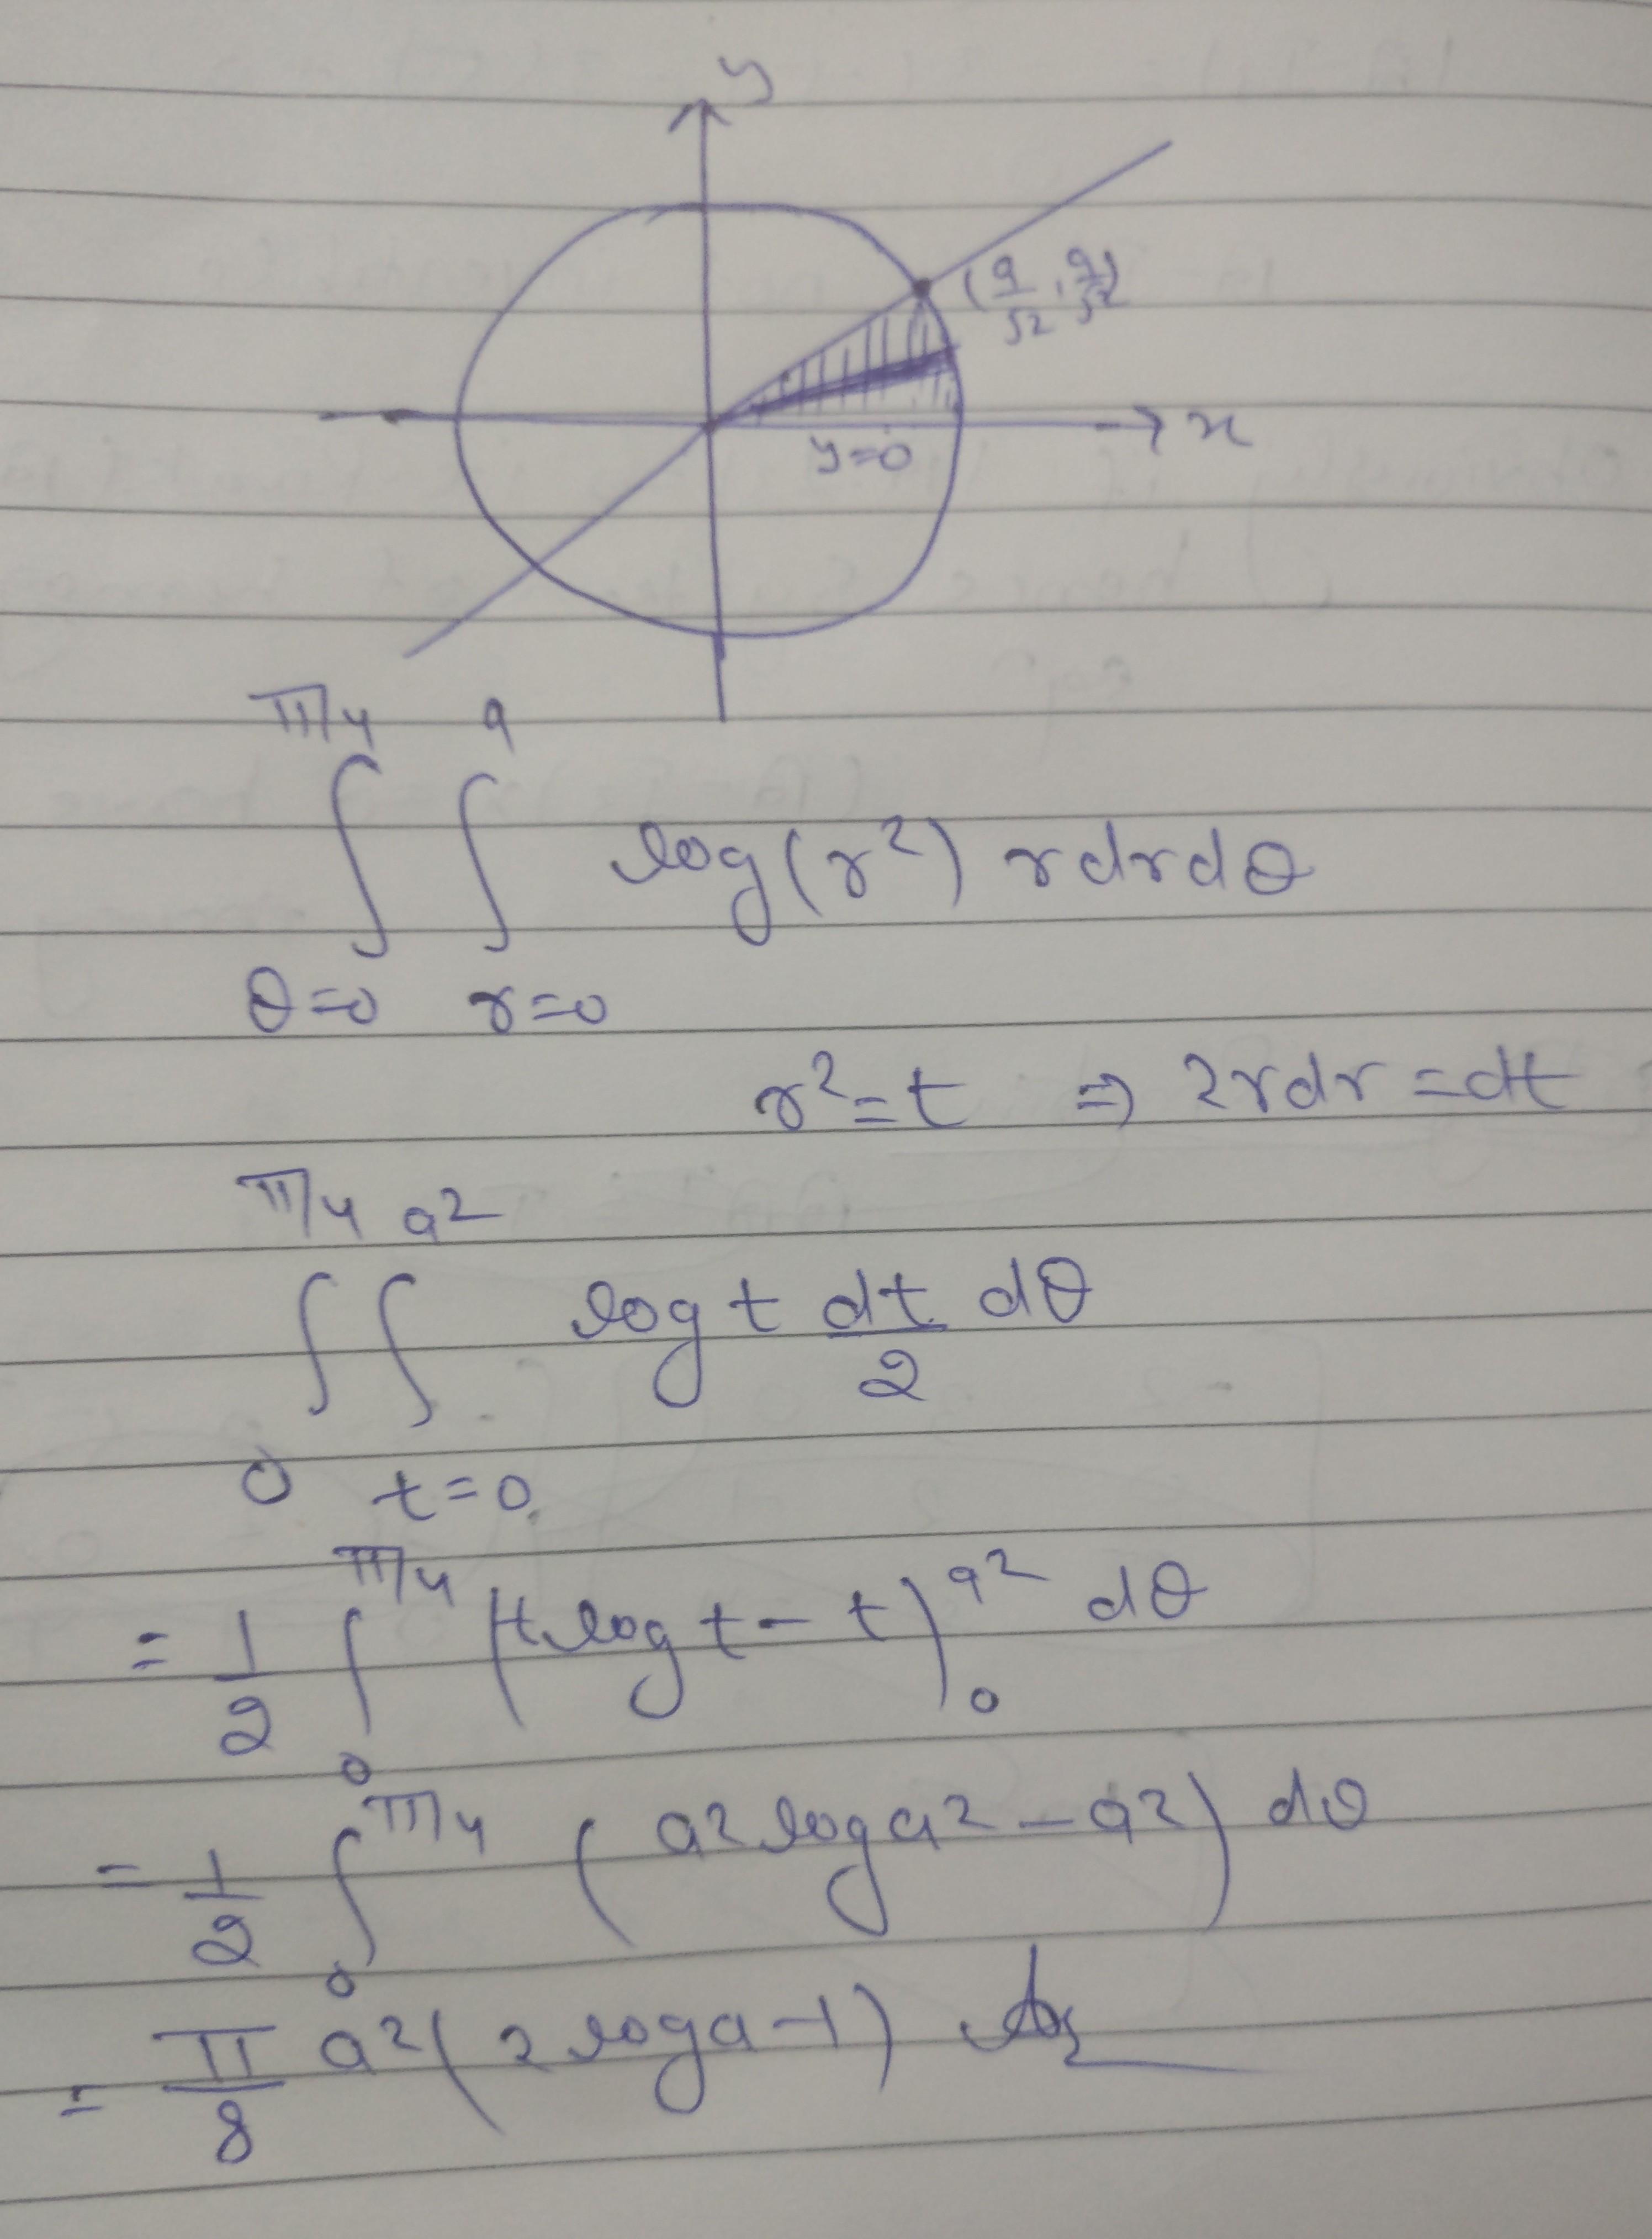 y
(a/√2, a/√2)
x
y=0
π/4 a
∫ ∫ log(r²) r dr dθ
θ=0 r=0
r²=t ⇒ 2rdr=dt
π/4 a²
∫∫ log t dt/2 dθ
0 t=0
= 1/2 ∫₀^π/4 (t log t - t)₀^a² dθ
= 1/2 ∫₀^π/4 (a² log a² - a²) dθ
= π/8 a² (2 log a - 1) Ans